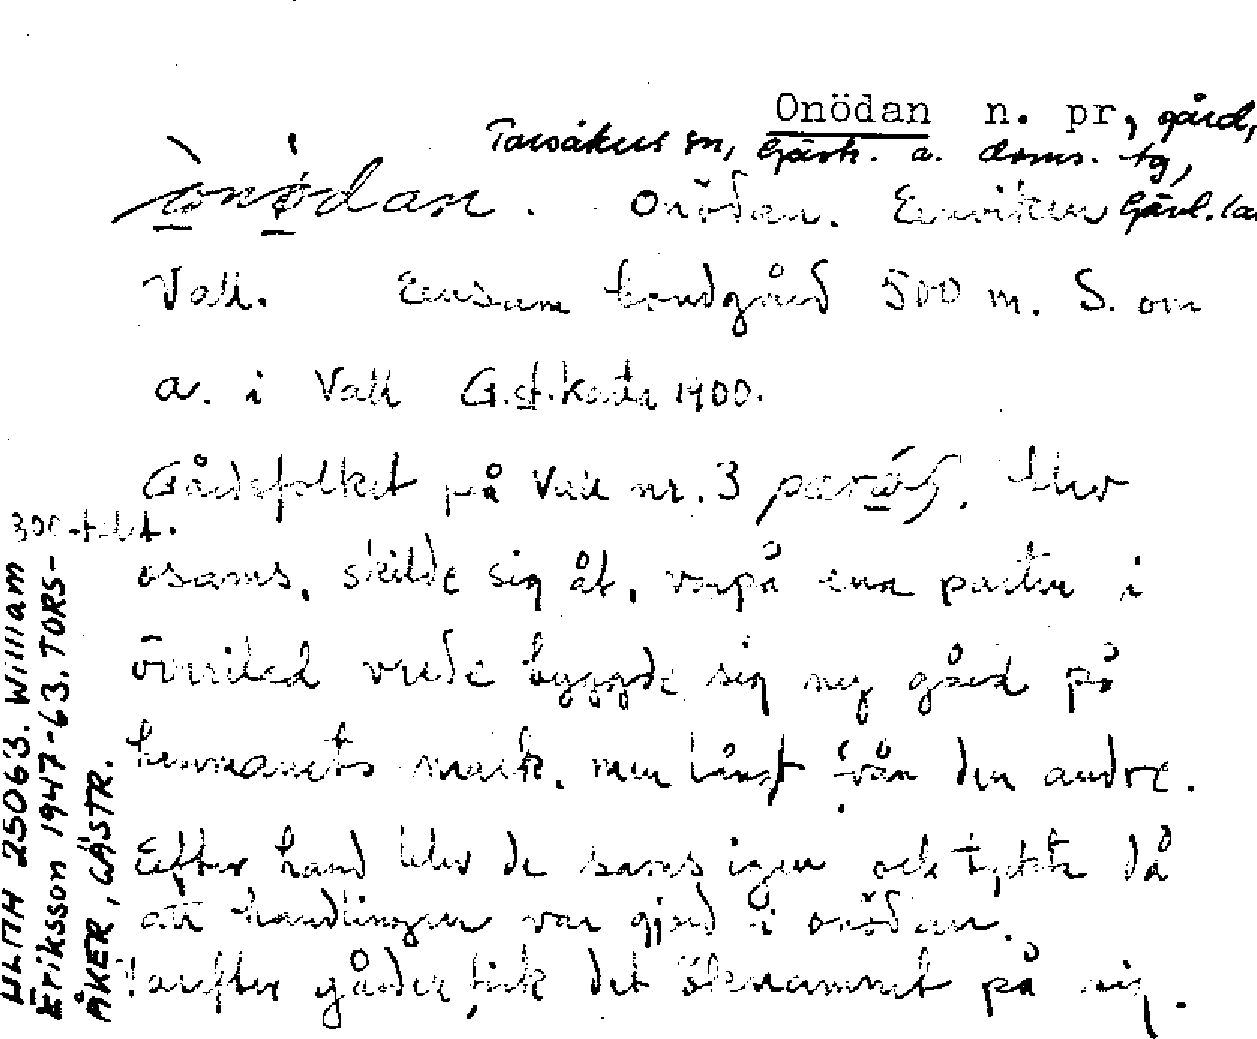 Onödan n. pr, gård,
Torsåkers sn, Gästr. a. doms. tg,
ònödan. Onödan. Enviken Gävl. län
Vall. Ensam bondgård 500 m. S. om
a. i Vall G.st.karta 1900.
Gårdsfolket på Vall nr. 3 blev
300-talet.
osams, skilde sig åt, varpå ena parten i
överilad vrede byggde sig ny gård på
hemmanets mark, men långt från den andre.
Efter hand blev de sams igen och tyckte då
att handlingen var gjord i onödan.
Varefter gården fick det öknamnet på sig.
ULMA 25063. William
Eriksson 1947-63. TORS-
ÅKER, GÄSTR.